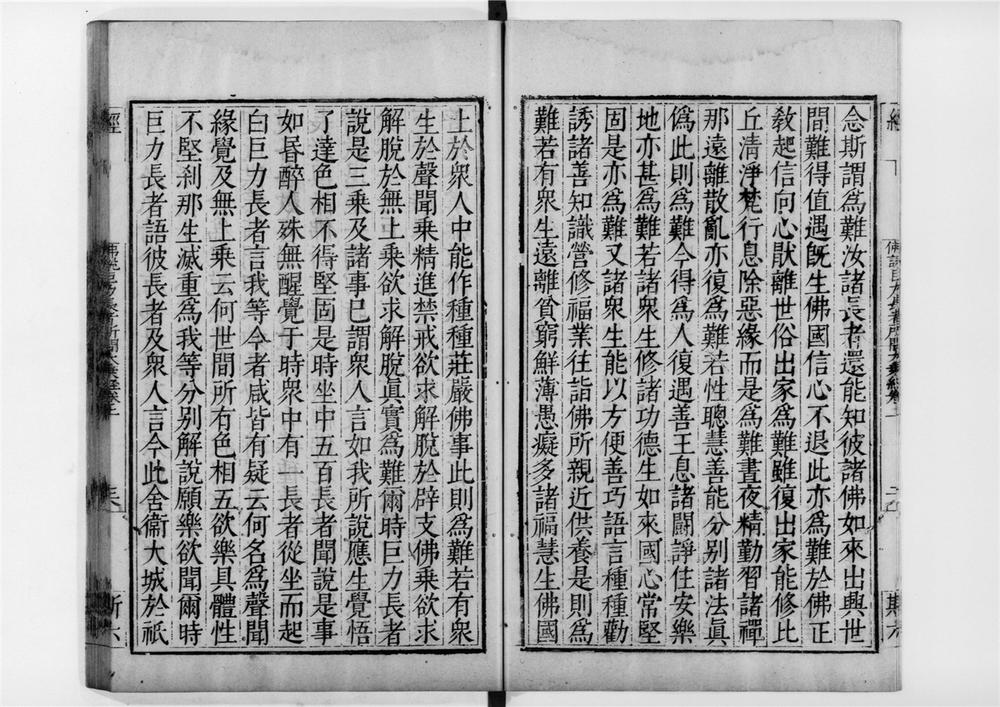 念斯謂爲難汝諸長者還能知彼諸佛如來出興世
間難得值遇旣生佛國信心不退此亦爲難於佛正
敎起信向心猒離世俗出家爲難雖復出家能修比
丘清淨梵行息除惡緣而是爲難晝夜精勤習諸禪
那遠離散亂亦復爲難若性聰慧善能分别諸法眞
僞此則爲難今得爲人復遇善王息諸鬪諍住安樂
地亦甚爲難若諸衆生修諸功德生如來國心常堅
固是亦爲難又諸衆生能以方便善巧語言種種勸
誘諸善知識營修福業往詣佛所親近供養是則爲
難若有衆生遠離貧窮鮮薄愚癡多諸福慧生佛國
土於衆人中能作種種莊嚴佛事此則爲難若有衆
生於聲聞乗精進禁戒欲求解脫於辟支佛乗欲求
解脫於無上乗欲求解脫眞實爲難爾時巨力長者
說是三乗及諸事已謂衆人言如我所說應生覺悟
了達色相不得堅固是時坐中五百長者聞說是事
如昬醉人殊無醒覺于時衆中有一長者從坐而起
白巨力長者言我等今者咸皆有疑云何名爲聲聞
緣覺及無上乗云何世間所有色相五欲樂具體性
不堅刹那生滅重爲我等分别解說願樂欲聞爾時
巨力長者語彼長者及衆人言今此舍衞大城於祇
經
佛說巨力長者所問大乗經卷上
斯六